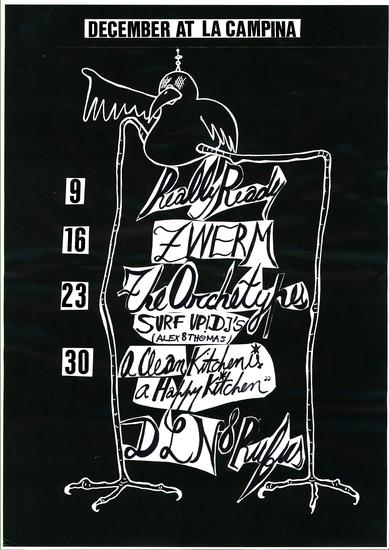 DECEMBER AT LA CAMPINA
9 Really Ready
16 ZWERM
23 The Archetypes
SURF UP! DJ'S
(ALEX & THOMAS)
30 a Clean Kitchen is
a Happy Kitchen
DLN & Rufus